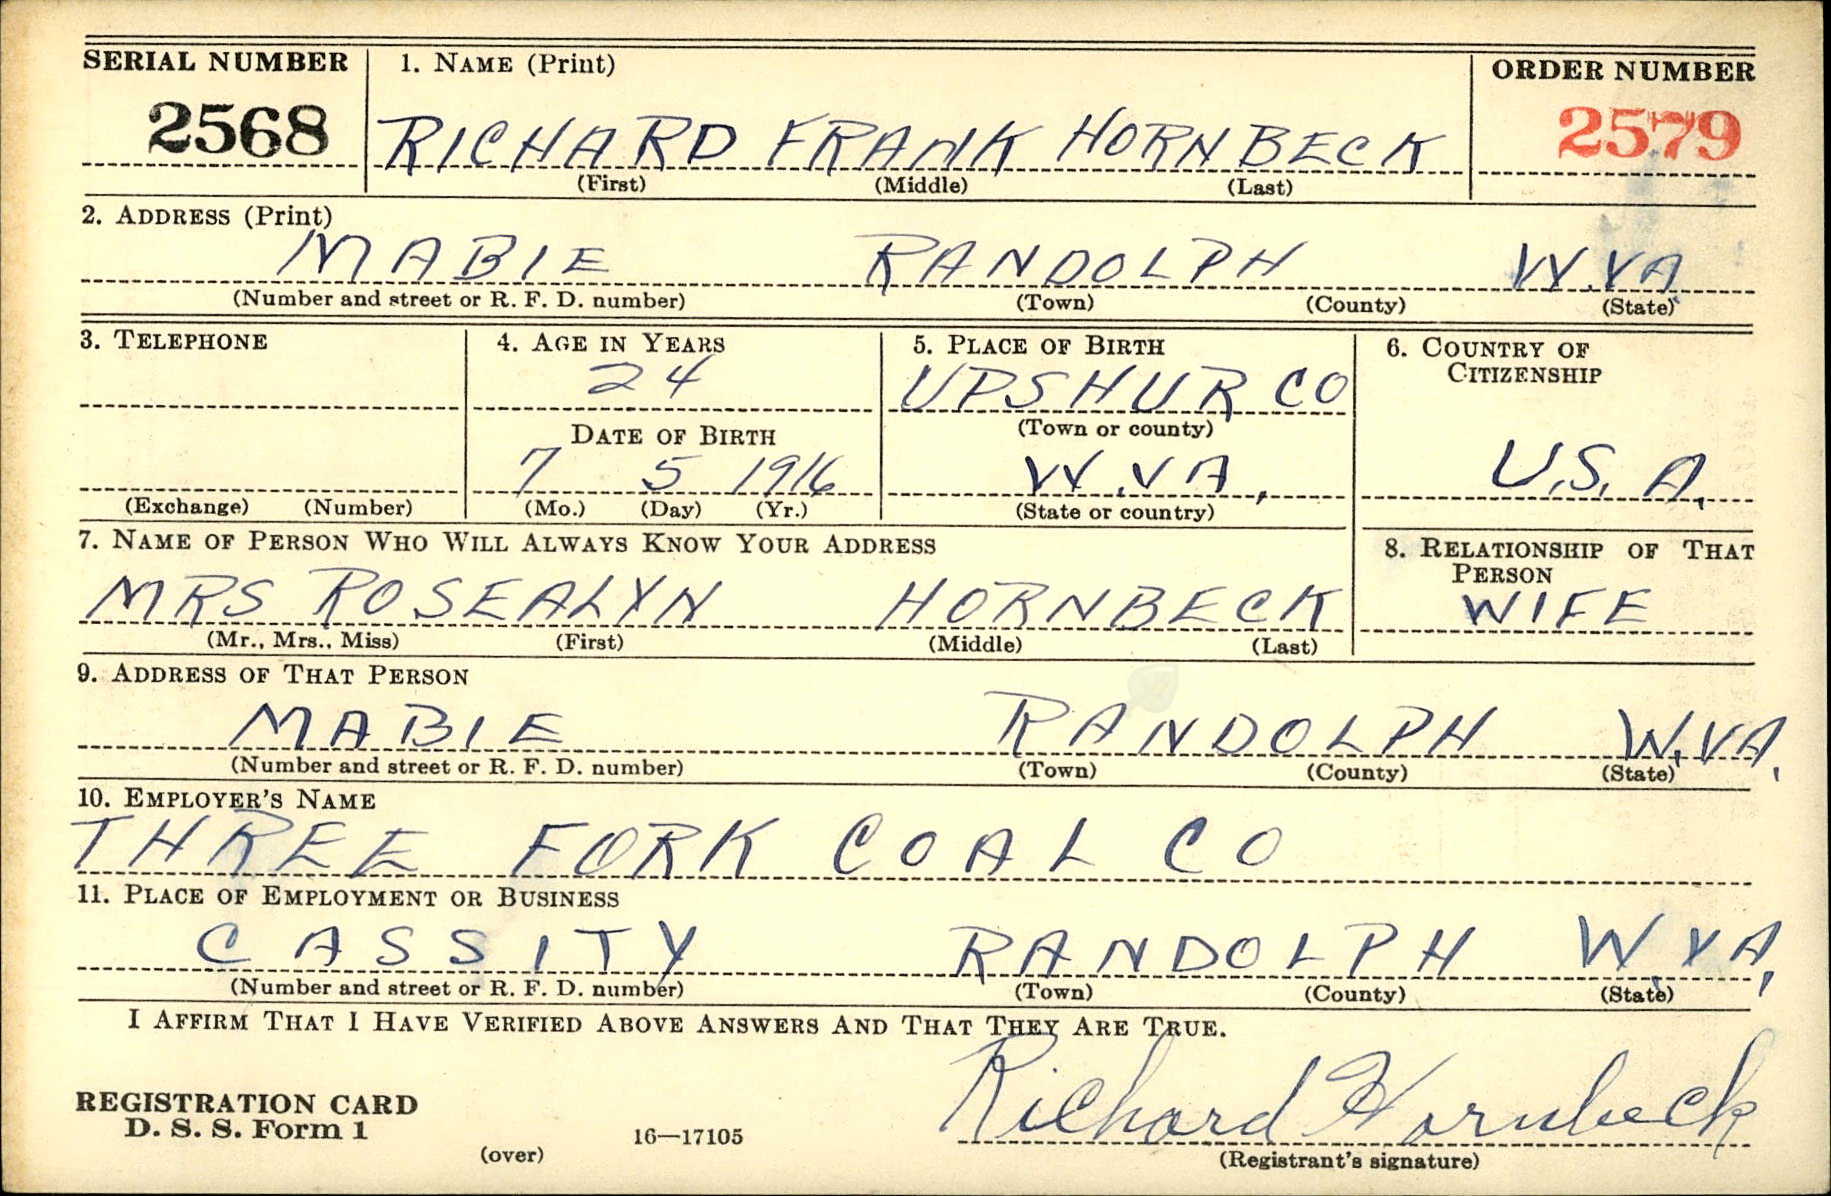 SERIAL NUMBER 1. NAME (Print) ORDER NUMBER
2568 RICHARD FRANK HORNBECK 2579
(First) (Middle) (Last)
2. ADDRESS (Print)
MABIE RANDOLPH W.VA
(Number and street or R. F. D. number) (Town) (County) (State)
3. TELEPHONE 4. AGE IN YEARS 5. PLACE OF BIRTH 6. COUNTRY OF CITIZENSHIP
24 UPSHUR CO
DATE OF BIRTH (Town or county)
7 5 1916 W.VA. U.S.A.
(Exchange) (Number) (Mo.) (Day) (Yr.) (State or country)
7. NAME OF PERSON WHO WILL ALWAYS KNOW YOUR ADDRESS 8. RELATIONSHIP OF THAT PERSON
MRS ROSEALYN HORNBECK WIFE
(Mr., Mrs., Miss) (First) (Middle) (Last)
9. ADDRESS OF THAT PERSON
MABIE RANDOLPH W.VA.
(Number and street or R. F. D. number) (Town) (County) (State)
10. EMPLOYER'S NAME
THREE FORK COAL CO
11. PLACE OF EMPLOYMENT OR BUSINESS
CASSITY RANDOLPH W.VA.
(Number and street or R. F. D. number) (Town) (County) (State)
I AFFIRM THAT I HAVE VERIFIED ABOVE ANSWERS AND THAT THEY ARE TRUE.
REGISTRATION CARD
D. S. S. Form 1
(over) 16—17105
Richard Hornbeck
(Registrant's signature)